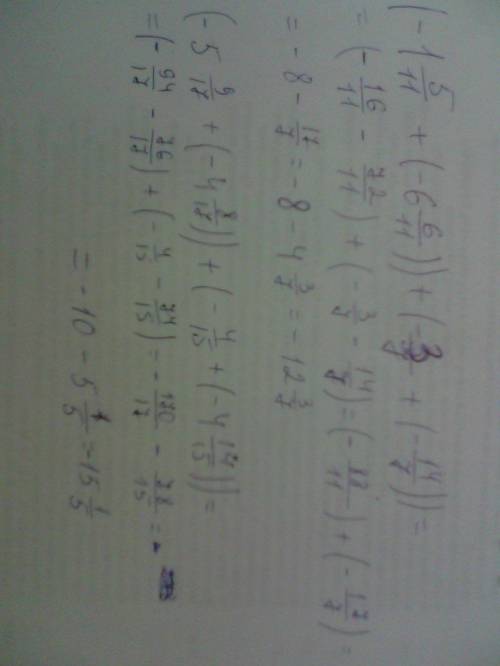 (-1 5/11 + (-6 6/11)) + (-3/7 + (-14/7)) =
= (-16/11 - 72/11) + (-3/7 - 14/7) = (-88/11) + (-17/7) =
= -8 - 17/7 = -8 - 4 3/7 = -12 3/7
(-5 9/17 + (-4 8/17)) + (-4/15 + (-4 14/15)) =
= (-94/17 - 76/17) + (-4/15 - 74/15) = -170/17 - 78/15 = -
= -10 - 5 1/5 = 15 1/5